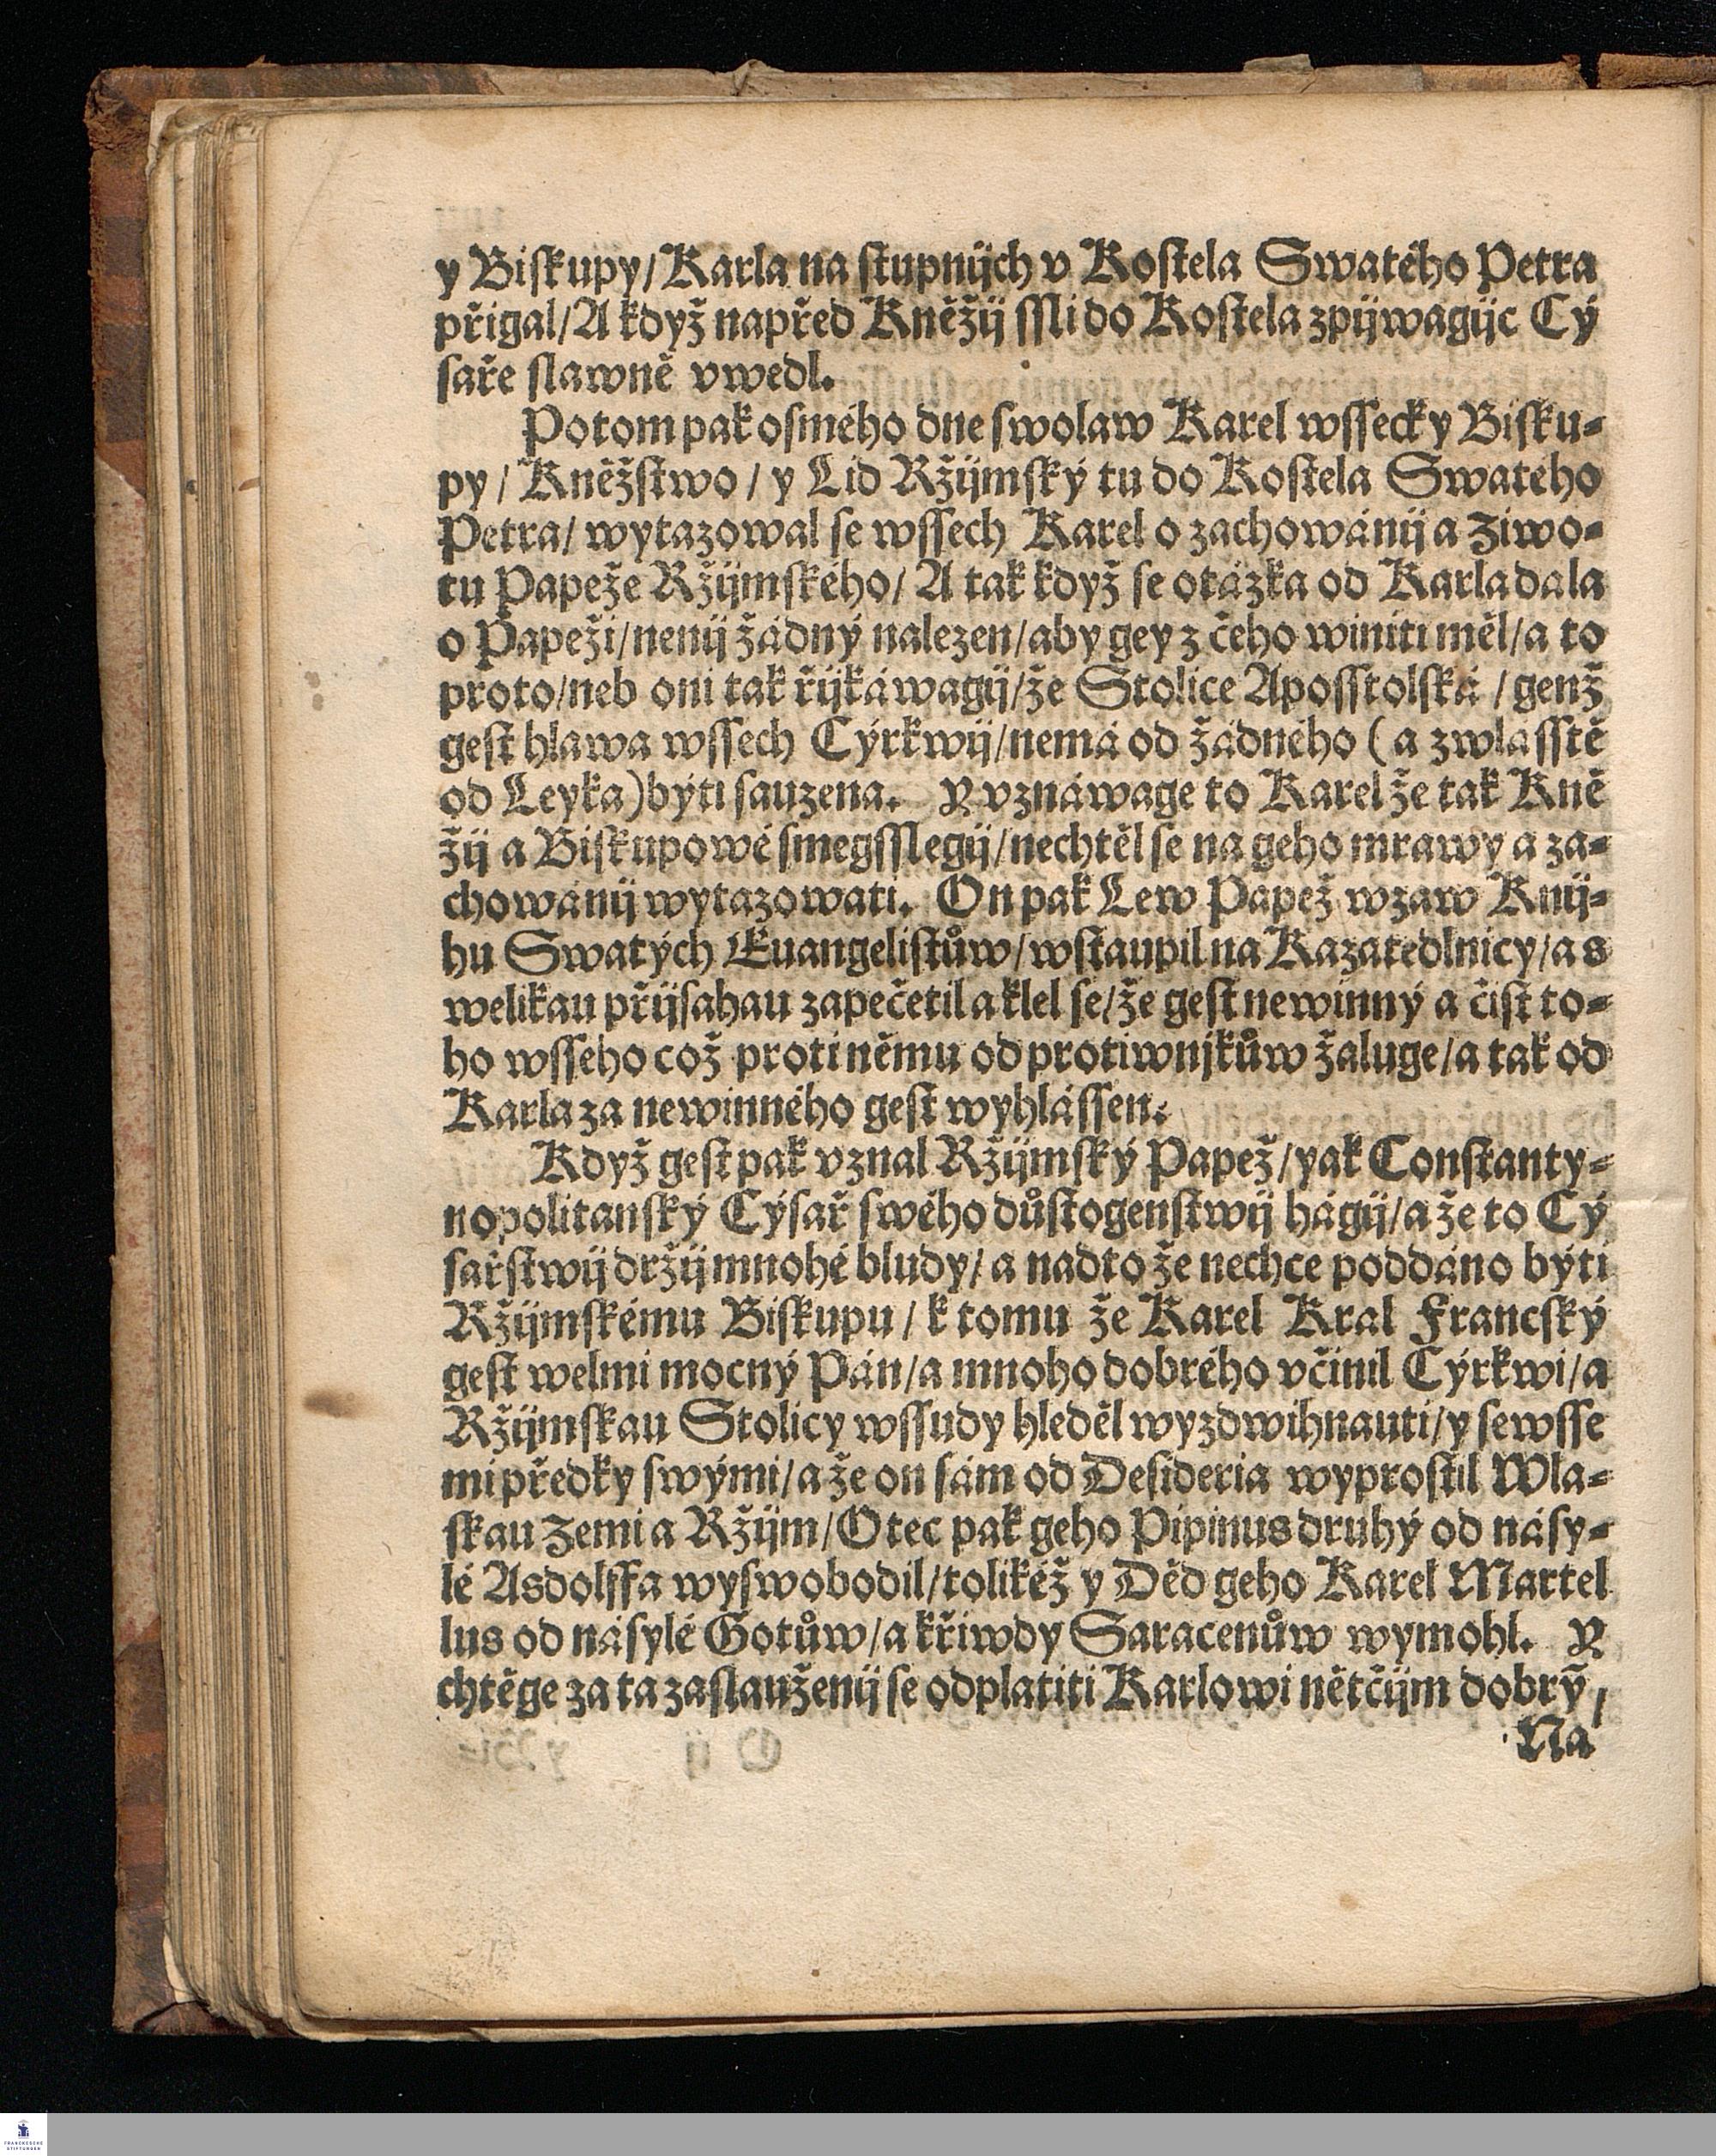 y Biſkupy/Karla na ſtupnijch v Koſtela Swatého Petra
přigal/A když napřed Kněžij ſſli do Koſtela zpijwagijc Cý
ſaře ſlawně vwedl.
Potom pak oſmého dne ſwolaw Karel wſſecky Biſku⸗
py/ Kněžſtwo / y Lid Ržijmſký tu do Koſtela Swateho
Petra/ wytazowal ſe wſſech Karel o zachowánij a ziwo⸗
tu Papeže Ržijmſkého/ A tak když ſe otázka od Karla dala
o Papeži/nenij žádný nalezen/aby gey z čeho winiti měl/a to
proto/neb oni tak řijkáwagij/že Stolice Apoſſtolſká / genž
geſt hlawa wſſech Cýrkwij/nemá od žádného ( a zwlaſſtě
od Leyka)býti ſauzena. Y vznáwage to Karel že tak Kně
žij a Biſkupowé ſmegſſlegij/nechtěl ſe na geho mrawy a za⸗
chowánij wytazowati. On pak Lew Papež wzaw Knij⸗
hu Swatých Euangeliſtůw/wſtaupil na Kazatedlnicy/a s
welikau přijſahau zapečetil a klel ſe/že geſt newinný a čiſt to⸗
ho wſſeho což proti němu od protiwnjkůw žaluge/a tak od
Karla za newinného geſt wyhláſſen.
Když geſt pak vznal Ržijmſký Papež/yak Conſtanty⸗
nopolitanſký Cýſař ſwého důſtogenſtwij hágij/a že to Cý
ſařſtwij držij mnohé bludy/ a nadto že nechce poddáno býti
Ržijmſkému Biſkupu / k tomu že Karel Kral Francſký
geſt welmi mocný Pán/a mnoho dobrého včinil Cýrkwi/a
Ržijmſkau Stolicy wſſudy hleděl wyzdwihnauti/y ſewſſe
mi předky ſwými/a že on ſám od Deſideria wyproſtil Wla⸗
ſkau zemi a Ržijm/Otec pak geho Pipinus druhý od náſy⸗
lé Asdolffa wyſwobodil/tolikéž y Děd geho Karel Martel
lus od náſylé Gotůw/a křiwdy Saracenůw wymohl. Y
chtěge za ta zaſlauženij ſe odplatiti Karlowi nětčijm dobrỹ/
Na
FRANCKESCHE
STIFTUNGEN